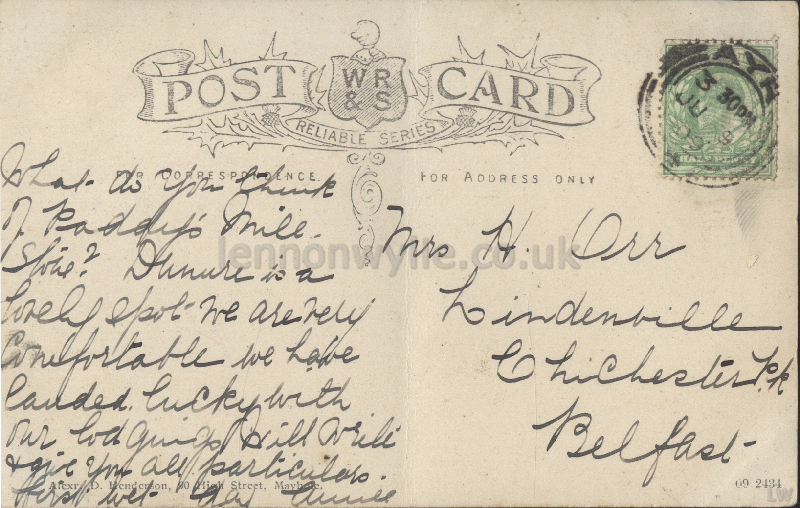 POST CARD
WR
& S
RELIABLE SERIES
FOR CORRESPONDENCE.
FOR ADDRESS ONLY
What do you think
of Paddy's Mill
Stone? Dunure is a
lovely spot we are very
comfortable we have
landed lucky with
our lodgings Will write
& give you all particulars
first wet day Annie
Mrs H. Orr
Lindenville
Chichester Pk
Belfast
MAYB
3 30PM
JU
HALF PENNY
Alexr. D. Henderson, 90 High Street, Maybole.
09 2434
lennonwylie.co.uk
LW